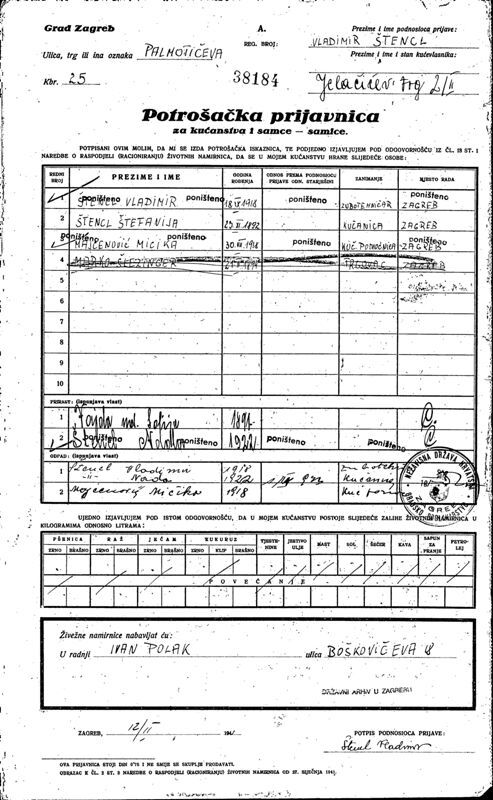 Grad Zagreb
A.
Prezime i ime podnosioca prijave:
VLADIMIR ŠTENCL
Ulica, trg ili ina oznaka PALMOTIĆEVA
REG. BROJ:
Prezime i ime i stan kućevlasnika:
Kbr. 25
38184
Jelačićev trg 2/II
Potrošačka prijavnica
za kućanstva i samce – samice.
POTPISANI OVIM MOLIM, DA MI SE IZDA POTROŠAČKA ISKAZNICA, TE PODJEDNO IZJAVLJUJEM POD ODGOVORNOŠĆU IZ ČL. 18 ST. 1
NAREDBE O RASPODJELI (RACIONIRANJU) ŽIVOTNIH NAMIRNICA, DA SE U MOJEM KUĆANSTVU HRANE SLIJEDEĆE OSOBE:
REDNI BROJ
PREZIME I IME
GODINA ROĐENJA
ODNOS PREMA PODNOSIOCU PRIJAVE ODN. STARJEŠINI
ZANIMANJE
MJESTO RADA
1 poništeno ŠTENCL VLADIMIR poništeno 1918 poništeno ZUBOTEHNIČAR ZAGREB
2 ŠTENCL ŠTEFANIJA 1892 KUĆANICA ZAGREB
poništeno MAJCENOVIĆ MICIKA poništeno 30. 1918 poništeno KUĆ. POMOĆNICA ZAGREB
4 MARKO ŠLEZINGER TRGOVAC ZAGREB
5
6
7
8
9
10
PRIRAST: (ispunjava vlast)
1
2 poništeno poništeno 1922 poništeno poništeno
ODPAD: (ispunjava vlast)
1 Štencl Vladimir 1918
-"- Nada 1922
2 Majcenović Micika 1918
NEZAVISNA DRŽAVA HRVATSKA
UJEDNO IZJAVLJUJEM POD ISTOM ODGOVORNOŠĆU, DA U MOJEM KUĆANSTVU POSTOJE SLIJEDEĆE ZALIHE ŽIVOTNIH NAMIRNICA U
KILOGRAMIMA ODNOSNO LITRAMA:
PŠENICA RAŽ JEČAM KUKURUZ TJESTENINE JESTIVO ULJE MAST SOL ŠEĆER KAVA SAPUN ZA PRANJE PETROLEJ
ZRNO BRAŠNO ZRNO BRAŠNO ZRNO BRAŠNO ZRNO KLIP BRAŠNO
POVEĆANJE
Živežne namirnice nabavljat ću:
U radnji IVAN POLAK ulica BOŠKOVIĆEVA 8
DRŽAVNI ARHIV U ZAGREBU
ZAGREB, 12/II 194
POTPIS PODNOSIOCA PRIJAVE:
Štencl Vladimir
OVA PRIJAVNICA STOJI DIN 0'75 I NE SMIJE SE SKUPLJE PRODAVATI.
OBRAZAC K ČL. 2 ST. 3 NAREDBE O RASPODJELI (RACIONIRANJU) ŽIVOTNIH NAMIRNICA OD 27. SIJEČNJA 1941.